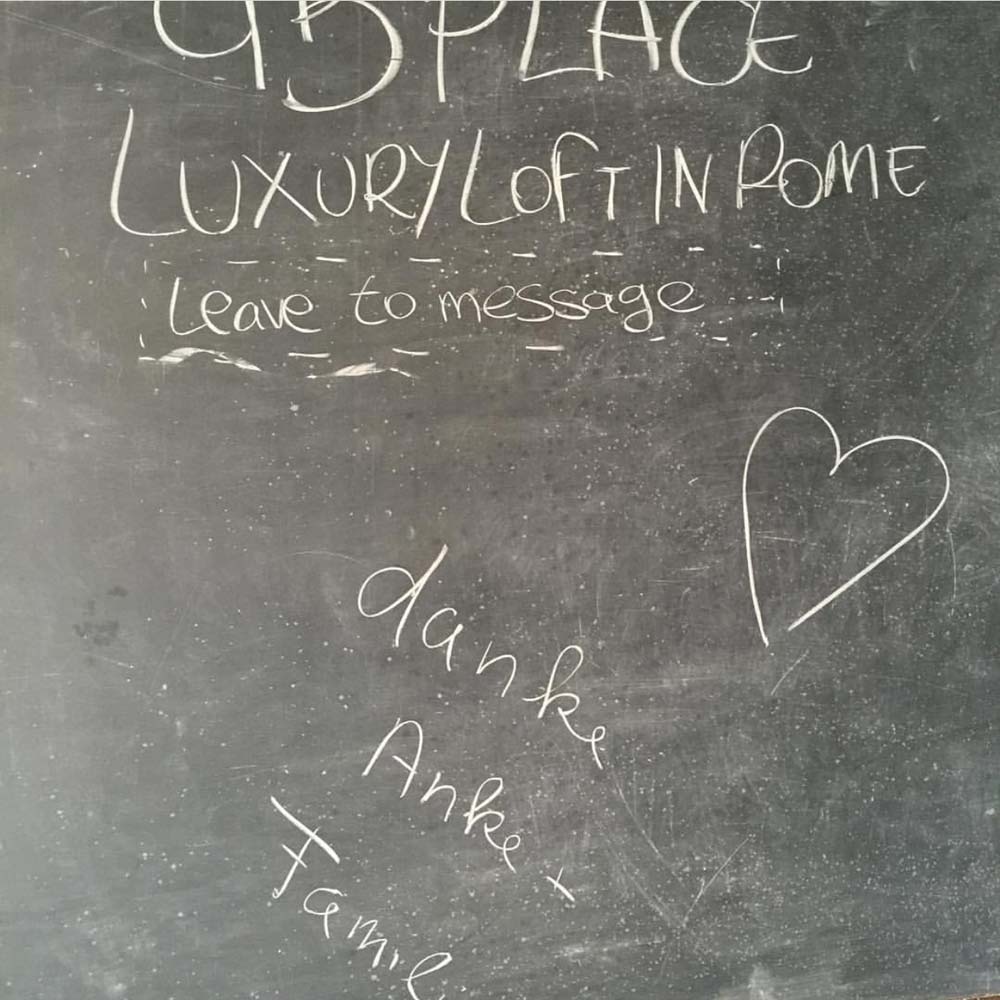 95 PLACE
LUXURY LOFT IN ROME
Leave to message
danke
Anke +
Famil